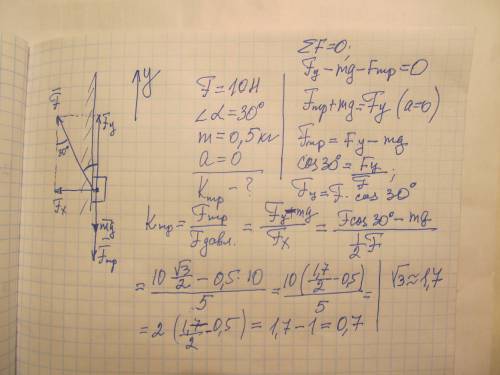 y
F⃗
F⃗y
30°
F⃗x
mg⃗
F⃗тр
F = 10Н
∠α = 30°
m = 0,5 кг
a = 0
Kтр - ?
ΣF = 0.
Fy - mg - Fтр = 0
Fтр + mg = Fy (a = 0)
Fтр = Fy - mg
cos30° = Fy/F ;
Fy = F · cos 30°
Kтр = Fтр/Fдавл. = (Fy - mg)/Fx = (Fcos30° - mg)/(½F)
= (10 √3/2 - 0,5 · 10)/5 = 10(1,7/2 - 0,5)/5 =
√3 ≈ 1,7
= 2 (1,7/2 - 0,5) = 1,7 - 1 = 0,7